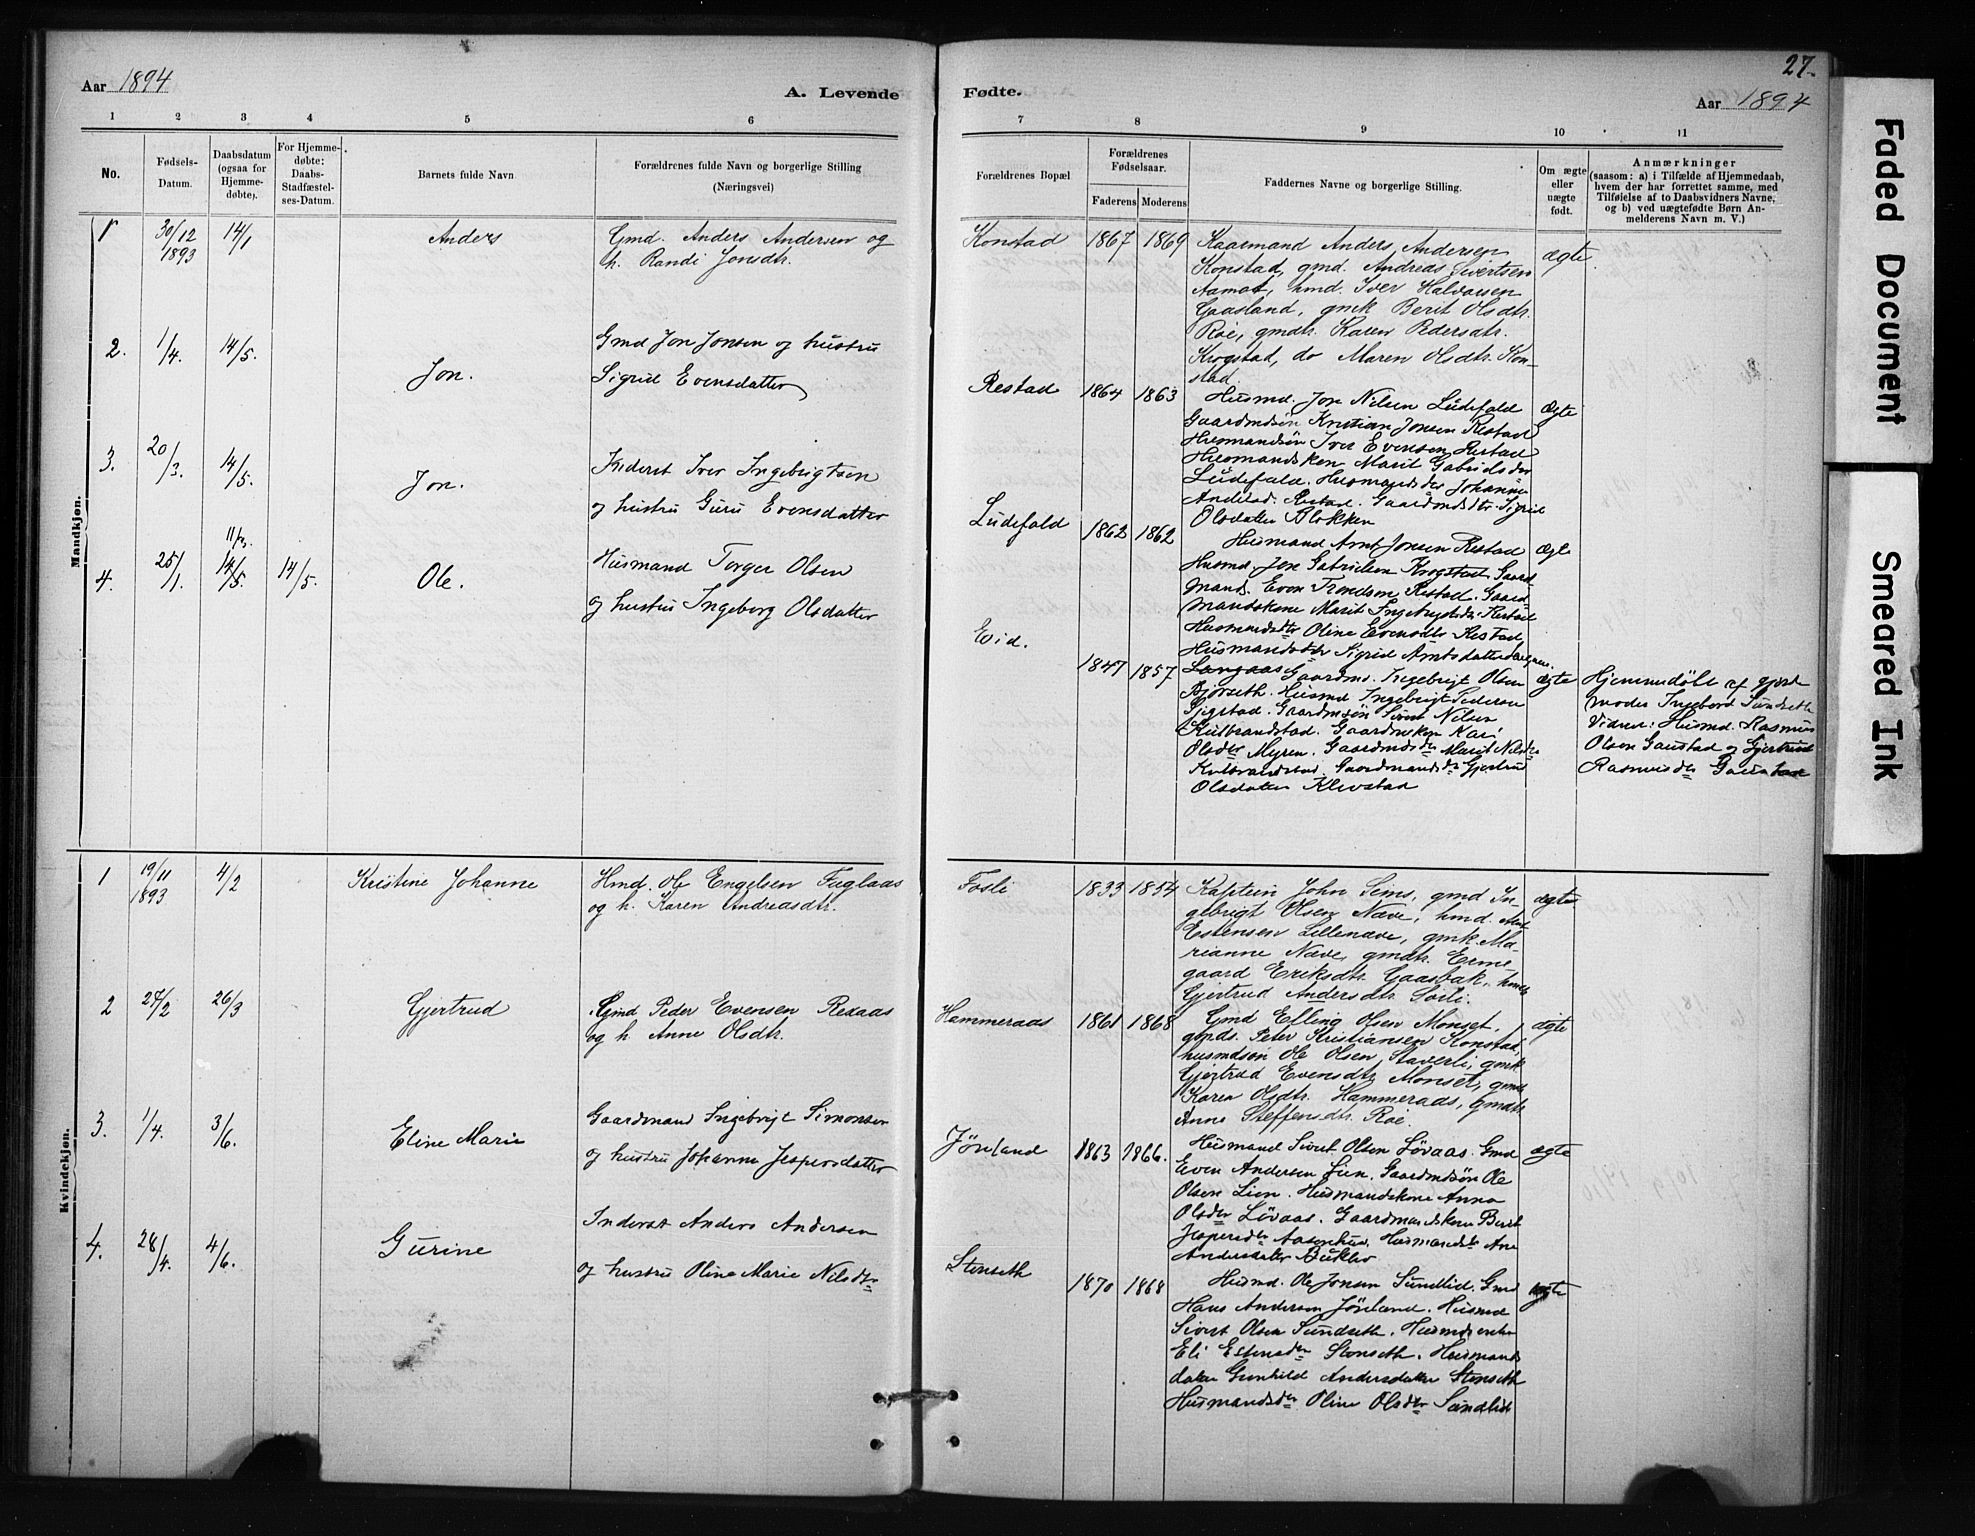 27.
Aar 1894
A. Levende
Fødte.
Aar 1894
1 2 3 4 5 6
7 8 9 10 11
No.
Fødsels-
Datum.
Daabsdatum
(ogsaa for
Hjemme-
døbte).
For Hjemme-
døbte:
Daabs-
Stadfæstel-
ses-Datum.
Barnets fulde Navn
Forældrenes fulde Navn og borgerlige Stilling
(Næringsvei)
Forældrenes Bopæl
Forældrenes
Fødselsaar.
Faderens Moderens
Faddernes Navne og borgerlige Stilling.
Om ægte
eller
uægte
født.
Anmærkninger
(saasom: a) i Tilfælde af Hjemmedaab,
hvem der har forrettet samme, med
Tilføielse af to Daabsvidners Navne,
og b) ved uægtefødte Børn An-
melderens Navn m. V.)
Mandkjøn.
1 30/12 1893 14/1 Anders
Gmd. Anders Andersen og
h. Randi Jonsdtr.
Konstad 1867 1869 ægte
Kaarmand Anders Andersen
Konstad, gmd. Andreas Sivertsen
Aamot, hmd. Iver Halvorsen
Gaasland, gmk Berit Olsdtr.
Roe, gmdtr. Karen Pedersdtr.
Krogstad, do Maren Olsdtr. Kon-
stad
2. 1/4. 14/5. Jon.
Gmd Jon Jonsen og hustru
Sigrid Evensdatter
Restad 1864 1863 Ægte
Husmd. Jon Nilsen Ludefald
Gaardmdsøn Kristian Jonsen Restad
Husmandsøn Iver Evensen Restad
Husmandsken Marit Gabrielsdr
Ludefald. Husmandsdr Johanne
Andstad. Restad. Gaardmdsdtr. Sigrid
Olsdatter Blokken
3. 20/3. 14/5. Jon.
Inderst Iver Ingebrigtsen
og hustru Guru Evensdatter
Ludefald 1862 1862 ægte
Husmand Arnt Jonsen Restad
Husmd. Jon Gabrielsen Krogstad. Gaard-
mands. Even Trondsen Restad. Gaard-
mandskone Marit Ingebrigtsdr. Restad
Husmandsdtr Oline Evensdtr Restad
Husmandsdtr Sigrid Arntsdatter
Langaas
4. 25/1. 14/5 14/5. Ole.
Husmand Torger Olsen
og hustru Ingeborg Olsdatter
Evid. 1847 1857 ægte
Gaardmd. Ingebrigt Olsen
Bjørseth. Husmd Ingebrigt Pedersen
Gjigstad. Gaardmsøn Sivert Nilsen
Kulbrandstad. Gaardmsken Kari
Olsdtr Myren. Gaardmdsdr Marit Nilsdr
Kulbrandstad. Gaardmandsdr Gjertrud
Olsdatter Klevstad
Hjemmedøbt af gjord-
moder Ingebord Sundseth
Vidner: Husmd. Rasmus
Olsen Gaustad og Gjertrud
Rasmusdr Gaustad
Kvindekjøn.
1 19/11 1893 4/2 Kristine Johanne
Hmd. Ole Engelsen Fuglaas
og h. Karen Andreasdtr.
Fosli 1833 1854 ægte
Kaptein John Seims, gmd In-
gebrigt Olsen Næve, hmd.
Estensen Lillenæve, gmk. Ma-
rianne Næve, gmdtr. Erme-
gaard Eriksdtr. Gaasbak, hmdt
Gjertrud Andersdtr. Sørli.
2 27/2 26/3 Gjertrud
Gmd Peder Evensen Rexaas
og h. Anne Olsdtr.
Hammeraas 1861 1868 ægte
Gmd Elling Olsen Monset,
gmds. Peter Kristiansen Konstad,
husmdsøn Ole Olsen Staverli, gmk
Gjertrud Evensdtr. Monset, gmdt
Karen Olsdtr. Hammeraas, gmdtr.
Anne Steffensdtr. Roe.
3. 1/4. 3/6. Eline Marie
Gaardmand Ingebrigt Simonsen
og hustru Johanne Jespersdatter
Jøreland 1863 1866. ægte
Husmand Sivert Olsen Løvaas. Gmd
Even Andersen Lien. Gaardmdsøn Ole
Olsen Lien. Husmandskone Anna
Olsdtr Løvaas. Gaardmandskone Berit
Jespersdtr Aasenhus. Husmandsdtr Ane
Andersdatter Buklev
4. 28/4. 4/6. Gurine
Inderst Anders Andersen
og hustru Oline Marie Nilsdtr
Stenseth 1870 1868 ægte
Husmd. Ole Jonsen Sundlid. Gmd
Hans Andersen Jøreland. Husmd
Sivert Olsen Sundseth. Husmdsenke
Eli Estensdr Stenseth. Husmands
datter Gunhild Andersdatter Stenseth
Husmandsdr Oline Olsdtr Sundlid
Faded Document
Smeared Ink